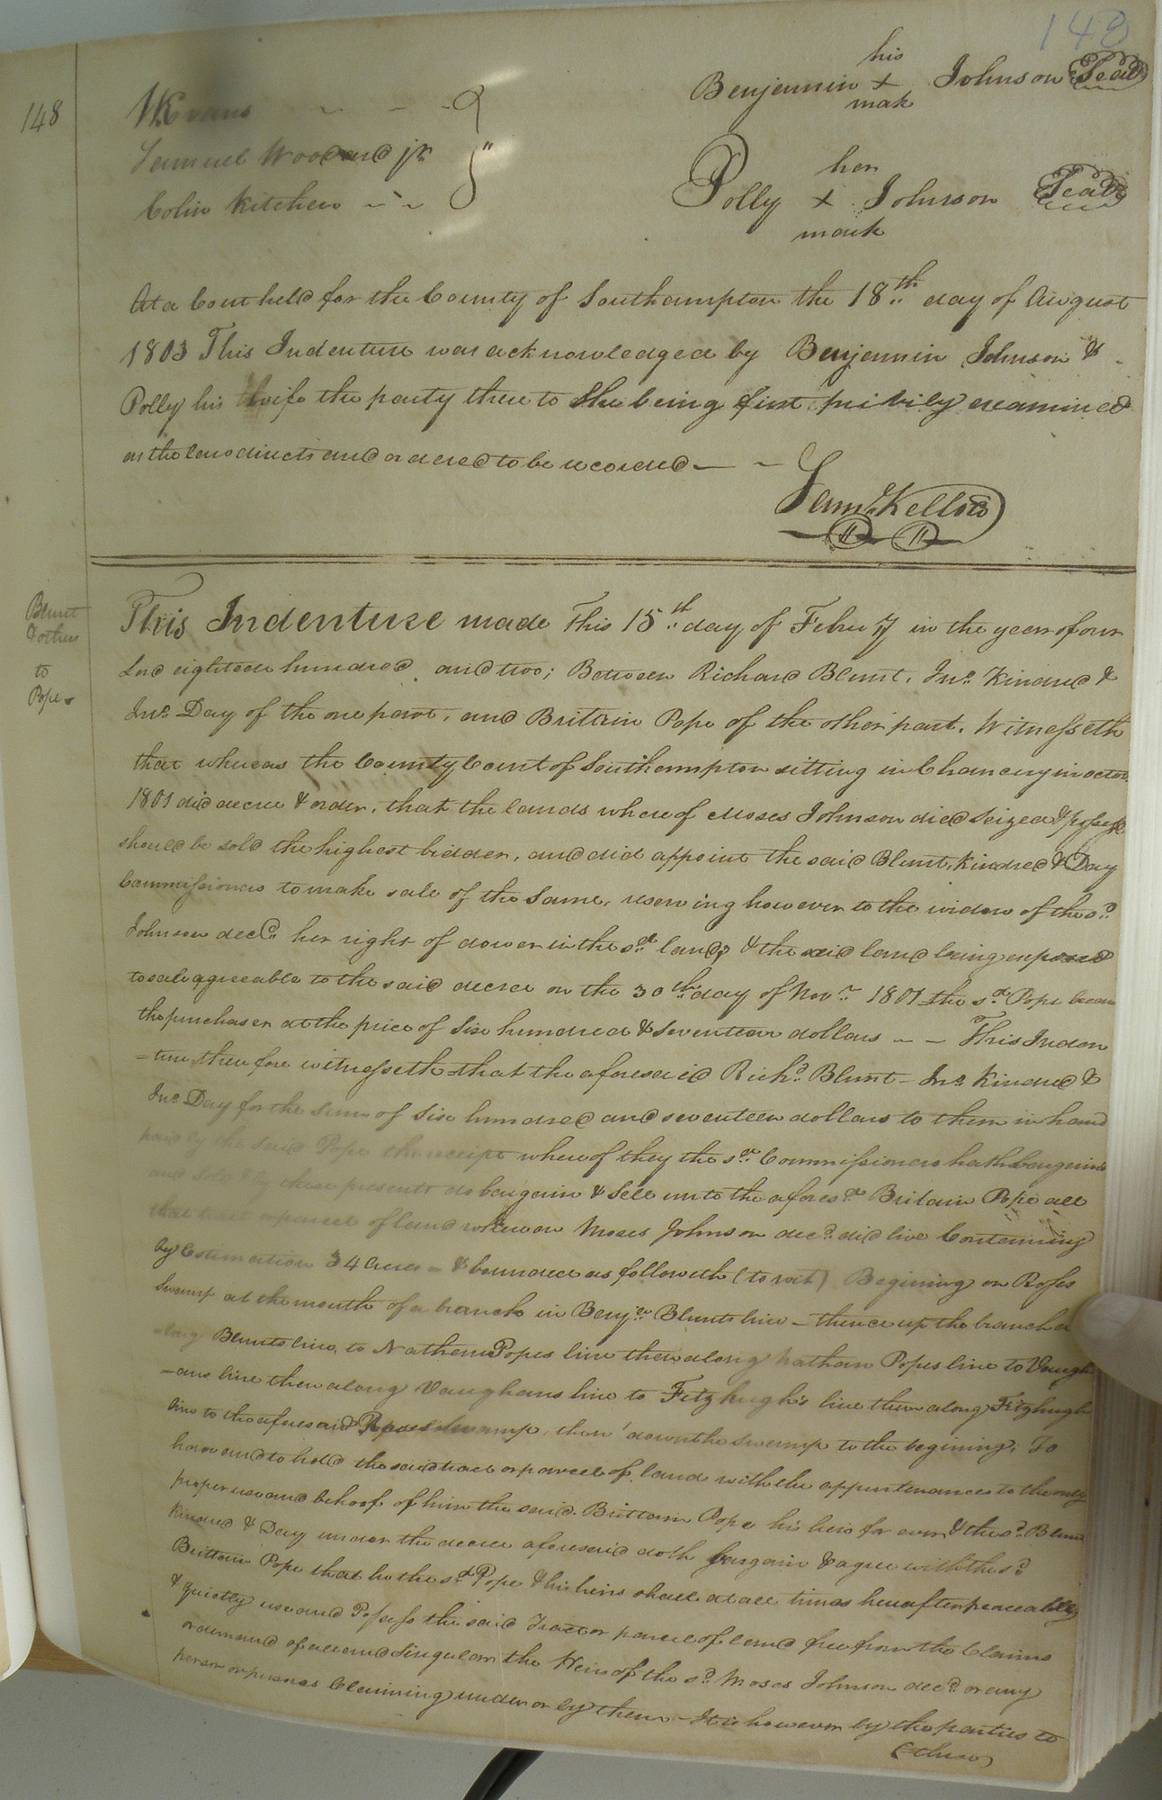 148
148
his
Benjemin x Johnson Seal
mak
W. Evans
Samuel Woodard jr
Colin Kitchen
her
Polly x Johnson Seal
mark
At a Court held for the County of Southampton the 18th day of August
1803 This Indenture was acknowledged by Benjemin Johnson &
Polly his wife the party there to She being first privily examined
as the law directs and ordered to be recorded
Saml. Kello
Blunt
& others
to
Pope
This Indenture made This 15th day of Febry in the year of our
Lord eighteen hundred and two; Between Richard Blunt, Jno. Kindred &
Jno. Day of the one part, and Brittain Pope of the other part, Witnesseth
that whereas the County Court of Southampton sitting in Chancery in octor.
1801 did decree & order, that the lands where of Moses Johnson died Seized & possess
should be sold the highest bidder, and did appoint the said Blunt, Kindred & Day
Commissioners to make sale of the same, reserving however to the widow of the sd.
Johnson decd. her right of dower in the sd. land, & the said land being exposed
to sale agreeable to the said decree on the 30th day of Novr. 1801 the sd. Pope became
the purchaser at the price of Six hundred & Seventeen dollars - - This Inden
-ture therefore witnesseth that the aforesaid Richd. Blunt - Jno. Kindred &
Jno. Day for the Sum of Six hundred and seventeen dollars to them in hand
paid by the said Pope the receipt where of they the sd. Commissioners hath bargained
and sold & by these presents do bargain & Sell unto the afores.d Britain Pope all
that tract or parcel of land whereon Moses Johnson decd. did live Containing
by Estimation 34 acres - & bounded as followeth (to wit) Begining on Roses
Swamp at the mouth of a branch in Benjn. Blunts line - thence up the branch a
-long Blunts line, to Nathans Popes line then along Nathan Popes line to Vaugh
-ans line then along Vaughans line to Fitzhugh's line then along Fitzhughs
line to the aforesaid swamp, then down the swamp to the begining, To
have and to hold the said tract or parcel of land with the appurtenances to the only
proper use and behoof of him the said Brittain Pope his heirs for ever, & the sd. Blunt
Kindred & Day under the decree aforesaid doth bargain & agree with the sd.
Brittain Pope that he the sd. Pope & his heirs shall at all times hereafter peaceably
& quietly use and Possess the said Tract or parcel of land free from the Claims
or demand of all and Singular the Heirs of the sd. Moses Johnson decd. or any
person or persons Claiming under or by them - It is however by the parties to
(these)